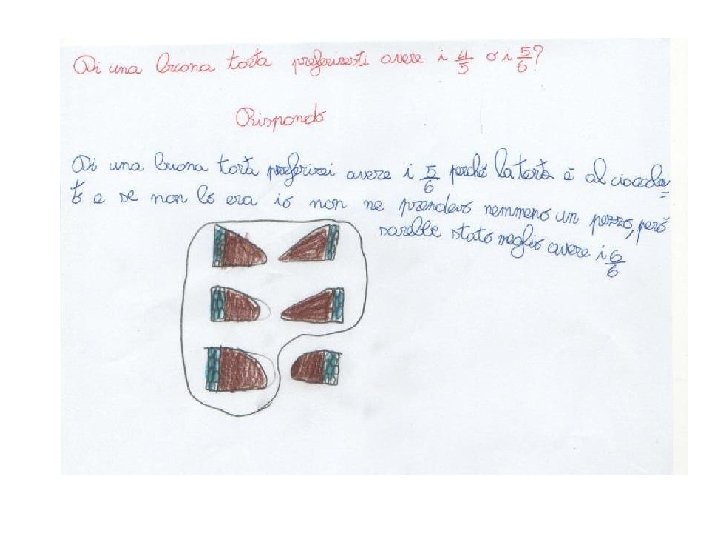 Di una buona torta preferiresti avere i 4/5 o i 5/6?
Rispondo
Di una buona torta preferirei avere i 5/6 perché la torta è al cioccola=
to e se non lo era io non ne prendevo nemmeno un pezzo, però
sarebbe stato meglio avere i 6/6